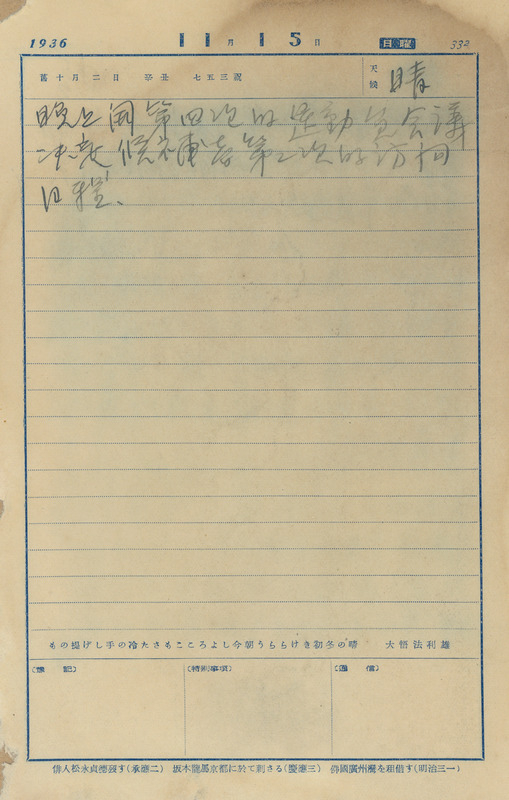 1936 11月 15日 日曜 332
舊十月二日 辛丑 七五三祝
天候 晴
晚上開第四次的運動員会議
決定候補者第二次的訪問
日程、
もの提げし手の冷たさもこころよし今朝うららけき初冬の晴 大悟法利雄
(感記) (特別事項) (通信)
俳人松永貞德歿す(承應二) 坂本龍馬京都に於て刺さる(慶應三) 佛國廣州灣を租借す(明治三一)